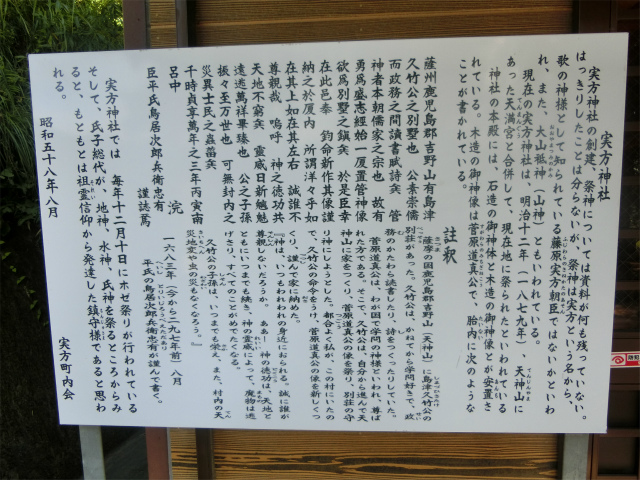 実方神社
実方神社の創建、祭神については資料が何も残っていない。
はっきりしたことは分らないが、祭神は実方という名から、
歌の神様として知られている藤原実方朝臣ではないかといわ
れ、また、大山祗神(山神)ともいわれている。
現在の実方神社は、明治十二年(一八七九年)、天神山に
あった天満宮と合併して、現在地に祭られたといわれている
神社の本殿には、石造の御神体と木造の御神像とが安置さ
れている。木造の御神像は菅原道真公で、胎内に次のような
ことが書かれている。
薩州鹿児島郡吉野山有島津
久竹公之別墅也 公素崇儒
而政務之間讀書賦詩矣 菅
神者本朝儒家之宗也 故有
勇爲盛志經始一厦置管神像
欲爲別墅之鎮矣 於是臣幸
在此邑奉 鈞命新作其像謹
納之於厦内 所謂洋々乎如
在其上如在其左右 誠誰不
尊親哉 嗚呼 神之徳功共
天地不窮矣 霊威日新魑魅
遠逃萬祥畢臻也 公之子孫
振々至万世也 可無封内之
災異士民之蟲菑矣
千時貞享萬年之三年丙寅南
呂中 浣
臣平氏鳥居次郎兵衛忠有
謹誌焉
註釈
薩摩の国鹿児島郡吉野山(天神山)に島津久竹公の
別荘があった。久竹公は、かねてから学問好きで、政
務のかたわら読書したり、詩をつくったりしていた。
菅原道真公は、わが国の学問の神様といわれ、尊ば
れた方である。そこで、久竹公は自分から進んで天
神山に家をつくり、菅原道真公の像を祭り、別荘の守
り神にしようとした。都合よく私が、この村にいたの
で、久竹公の命令をうけ、菅原道真公の像を新しくつ
くり、謹んで家に納めた。
『神は、いつもわれわれの身近におられる。誠に誰が
尊親しないだろうか。ああ、神の徳功は、天地と
ともにいつまでも続き、神の霊威によって、魔物は逃
げさり、すべてのことがめでたくなる。
久竹公の子孫は、いつまでも栄え、また、村内の天
災地変や虫の災もなくなろう。』
一六八三年(今から二九七年前)八月
平氏の鳥居次郎兵衛忠有が謹んで書く。
実方神社では 毎年十二月十日にホゼ祭りが行われている
そして、氏子総代が、地神、水神、氏神を祭るところからみ
ると、もともとは祖霊信仰から発達した鎮守様であると思わ
れる。
昭和五十八年八月
実方町内会